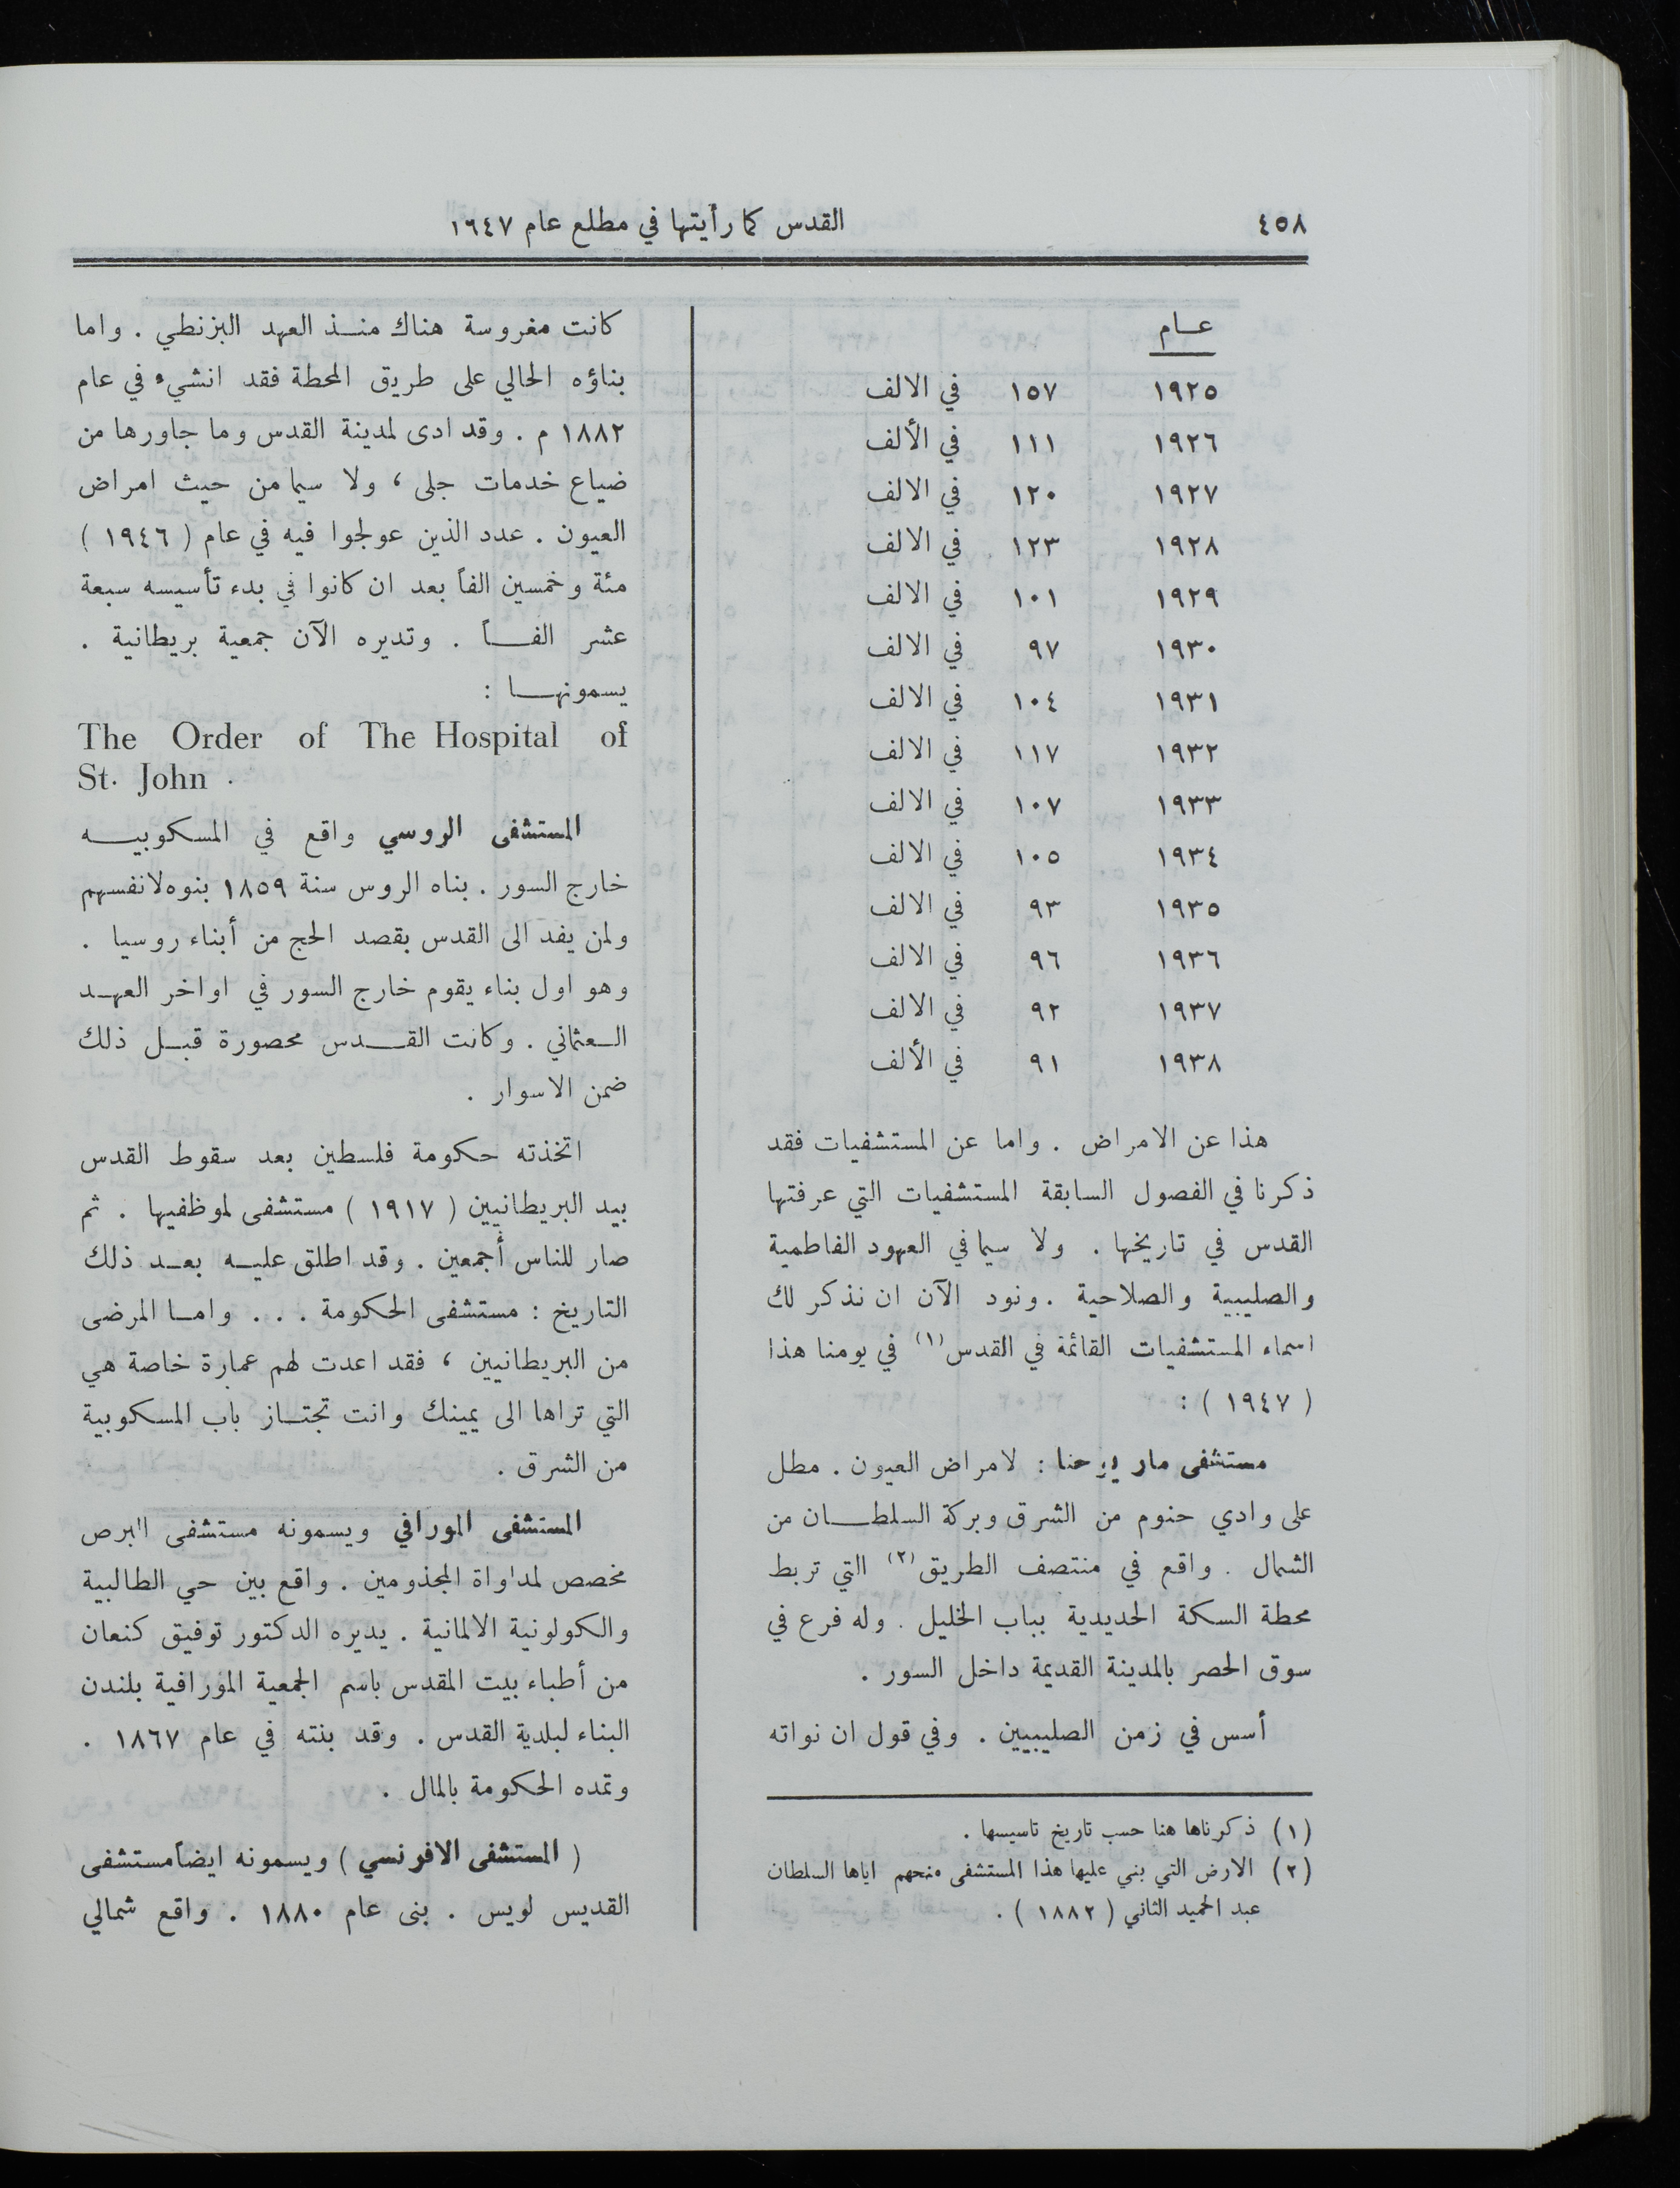 ٤٥٨
القدس كما رأيتها في مطلع عام ١٦٤٧
عـام
١٩٢٥ ١٥٧ في الالف
١٩٢٦ ١١١ في الألف
١٩٢٧ ١٢٠ في الالف
١٩٢٨ ١٢٣ في الالف
١٩٢٩ ١٠١ في الالف
١٩٣٠ ٩٧ في الالف
١٩٣١ ١٠٤ في الالف
١٩٣٢ ١١٧ في الالف
١٩٣٣ ١٠٧ في الالف
١٩٣٤ ١٠٥ في الالف
١٩٣٥ ٩٣ في الالف
١٩٣٦ ٩٦ في الالف
١٩٣٧ ٩٢ في الالف
١٩٣٨ ٩١ في الألف
هذا عن الامراض . واما عن المستشفيات فقد
ذكرنا في الفصول السابقة المستشفيات التي عرفتها
القدس في تاريخها . ولا سيما في العهود الفاطمية
والصليبية والصلاحية . ونود الآن ان نذكر لك
اسماء المستشفيات القائمة في القدس(١) في يومنا هذا
( ١٩٤٧ ) :
مستشفى مار يوحنا : لامراض العيون . مطل
على وادي حنوم من الشرق وبركة السلطـان من
الشمال . واقع في منتصف الطريق(٢) التي تربط
محطة السكة الحديدية بباب الخليل . وله فرع في
سوق الحصر بالمدينة القديمة داخل السور .
أسس في زمن الصليبيين . وفي قول ان نواته
(١) ذكرناها هنا حسب تاريخ تاسيسها .
(٢) الارض التي بني عليها هذا المستشفى منحهم اياها السلطان
عبد الحميد الثاني ( ١٨٨٢ ) .
كانت مغروسة هناك منـذ العهد البزنطي . واما
بناؤه الحالي على طريق المحطة فقد انشيء في عام
١٨٨٢ م . وقد ادى لمدينة القدس وما جاورها من
ضياع خدمات جلى ، ولا سيما من حيث امراض
العيون . عدد الذين عولجوا فيه في عام ( ١٩٤٦ )
مئة وخمسين الفاً بعد ان كانوا في بدء تأسيسه سبعة
عشر الفـاً . وتديره الآن جمعية بريطانية .
يسمونهـا :
The Order of The Hospital of
St. John .
المستشفى الروسي واقع في المسكوبيـه
خارج السور . بناه الروس سنة ١٨٥٩ بنوه لانفسهم
ولمن يفد الى القدس بقصد الحج من أبناء روسيا .
وهو اول بناء يقوم خارج السور في اواخر العهـد
الـعثماني . وكانت القـدس محصورة قبـل ذلك
ضمن الاسوار .
اتخذته حكومة فلسطين بعد سقوط القدس
بيد البريطانيين ( ١٩١٧ ) مستشفى لموظفيها . ثم
صار للناس أجمعين . وقد اطلق عليـه بعـد ذلك
التاريخ : مستشفى الحكومة . . . وامـا المرضى
من البريطانيين ، فقد اعدت لهم عمارة خاصة هي
التي تراها الى يمينك وانت تجتـاز باب المسكوبية
من الشرق .
المستشفى المورافي ويسمونه مستشفى البرص
مخصص لمداواة المجذومين . واقع بين حي الطالبية
والكولونية الالمانية . يديره الدكتور توفيق كنعان
من أطباء بيت المقدس باسم الجمعية المورافية بلندن
البناء لبلدية القدس . وقد بنته في عام ١٨٦٧ .
وتمده الحكومة بالمال .
( المستشفى الافرنسي ) ويسمونه ايضاً مستشفى
القديس لويس . بنى عام ١٨٨٠ . واقع شمالي